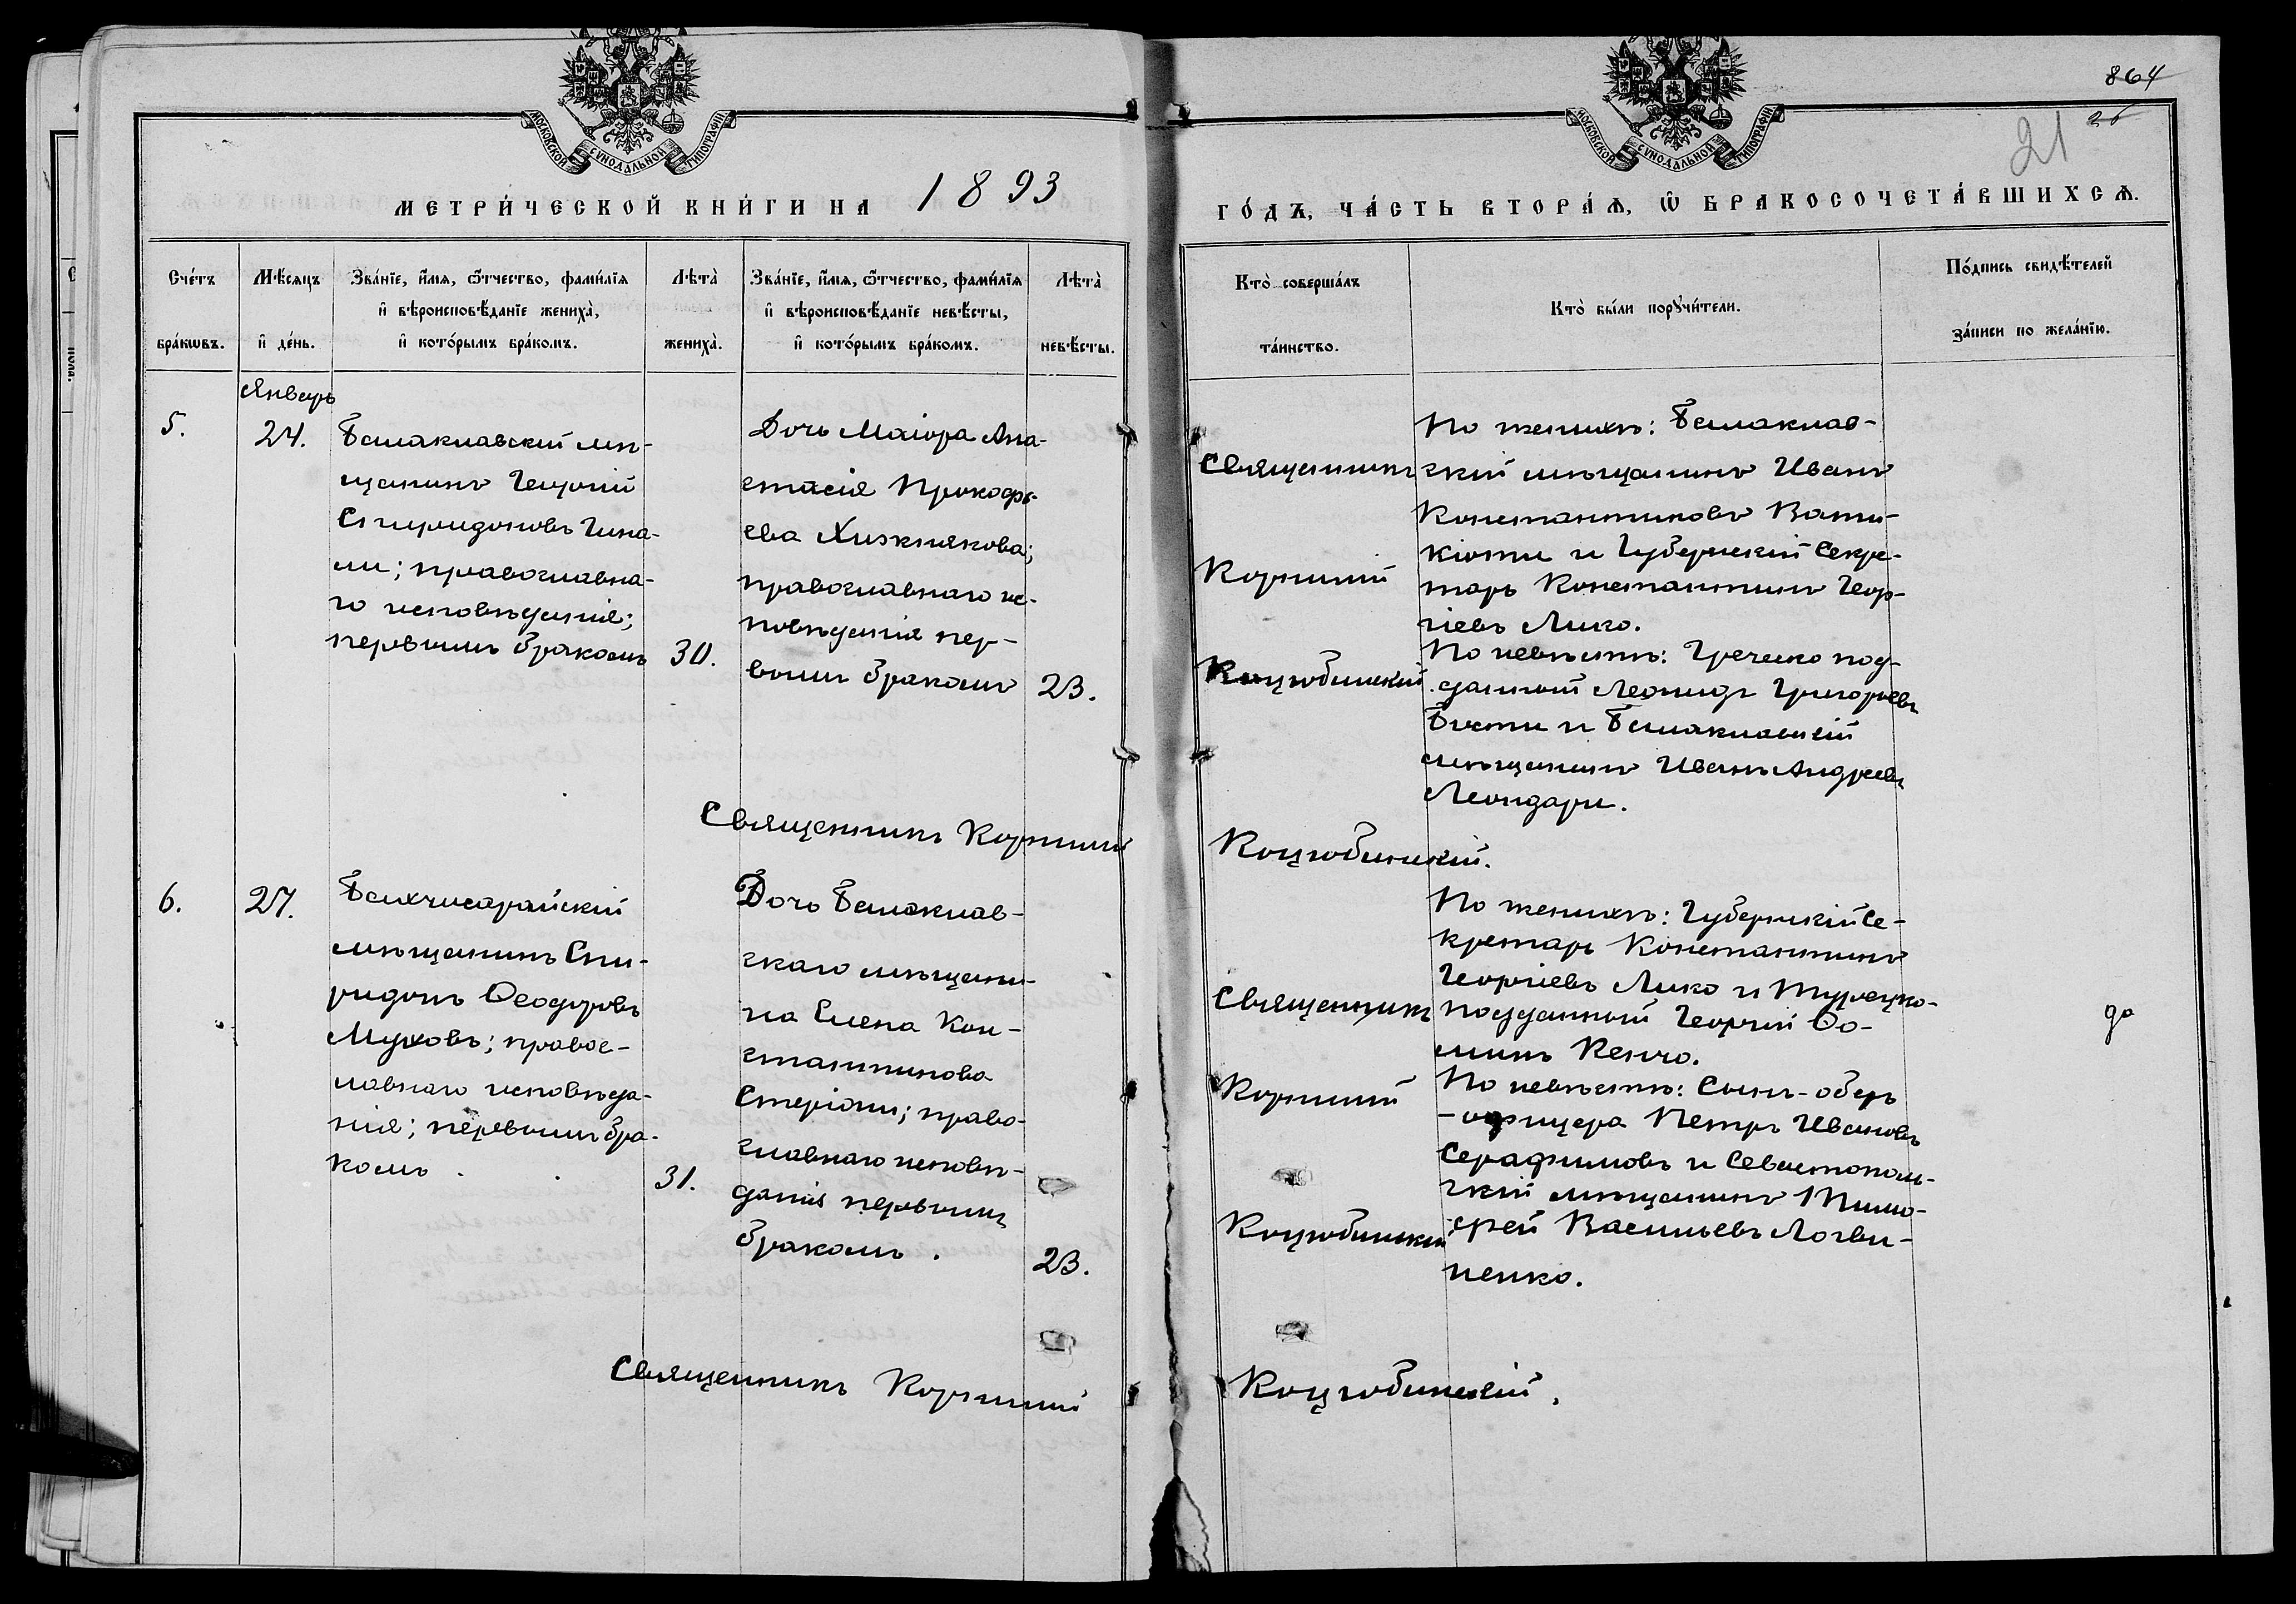 864
26
21
МОСКОВСКОЙ СѴНОДАЛЬНОЙ ТИПОГРАФІИ
МОСКОВСКОЙ СѴНОДАЛЬНОЙ ТИПОГРАФІИ
МЕТРИ́ЧЕСКОЙ КНИ́ГИ НА 1893
ГО́ДЪ, ЧА́СТЬ ВТОРА́Ѧ, Ѿ БРАКОСОЧЕТА́ВШИХСѦ.
Сче́тъ
бра́кѡвъ.
Мѣ́сяцъ
и҆ де́нь.
Зва́нїе, и҆́мя, ѻ҆́тчество, фами́лїя
и҆ вѣроисповѣ́данїе жениха̀,
и҆ кото́рымъ бра́комъ.
Лѣта̀
жениха̀.
Зва́нїе, и҆́мя, ѻ҆́тчество, фами́лїя
и҆ вѣроисповѣ́данїе невѣ́сты,
и҆ кото́рымъ бра́комъ.
Лѣта̀
невѣ́сты.
Кто̀ соверша́лъ
та́инство.
Кто̀ бы́ли порꙋчи́тели.
По́дпись свидѣ́телей
за́писи по жела́нїю.
Январь
5.
24.
Балаклавскій мѣ-
щанинъ Георгій
Спиридоновъ Гина-
ли; православна-
го исповѣданія;
первымъ бракомъ
30.
Дочь Маіора Ана-
стасія Прокофь-
ева Хизнякова;
православнаго ис-
повѣданія пер-
вымъ бракомъ
23.
Священникъ
Корнилій
Коцюбинскій
По женихѣ: Балаклав-
скій мѣщанинъ Иванъ
Константиновъ Вати-
кіоти и Губернскій Секре-
тарь Константинъ Геор-
гіевъ Лико.
По невѣстѣ: Греческо под-
данный Леонидъ Григорьевъ
Бисти и Балаклавскій
мѣщанинъ Иванъ Андреевъ
Леондари.
Священникъ Корнилій
Коцюбинскій.
6.
27.
Бахчисарайскій
мѣщанинъ Спи-
ридонъ Ѳеодоровъ
Муховъ; правос-
лавнаго исповѣда-
нія; первымъ бра-
комъ.
31.
Дочь Балаклав-
скаго мѣщани-
на Елена Кон-
стантинова
Стеріони; право-
славнаго исповѣ-
данія первымъ
бракомъ.
23.
Священникъ
Корнилій
Коцюбинскій
По женихѣ: Губернскій Се-
кретарь Константинъ
Георгіевъ Лико и Турецко-
подданный Георгій Ѳо-
минъ Кенчо.
По невѣстѣ: Сынъ-оберъ
-офицера Петръ Ивановъ
Серафимовъ и Севастополь-
скій мѣщанинъ Тимо-
фей Васильевъ Логви-
ненко.
до
Священникъ Корнилій
Коцюбинскій.